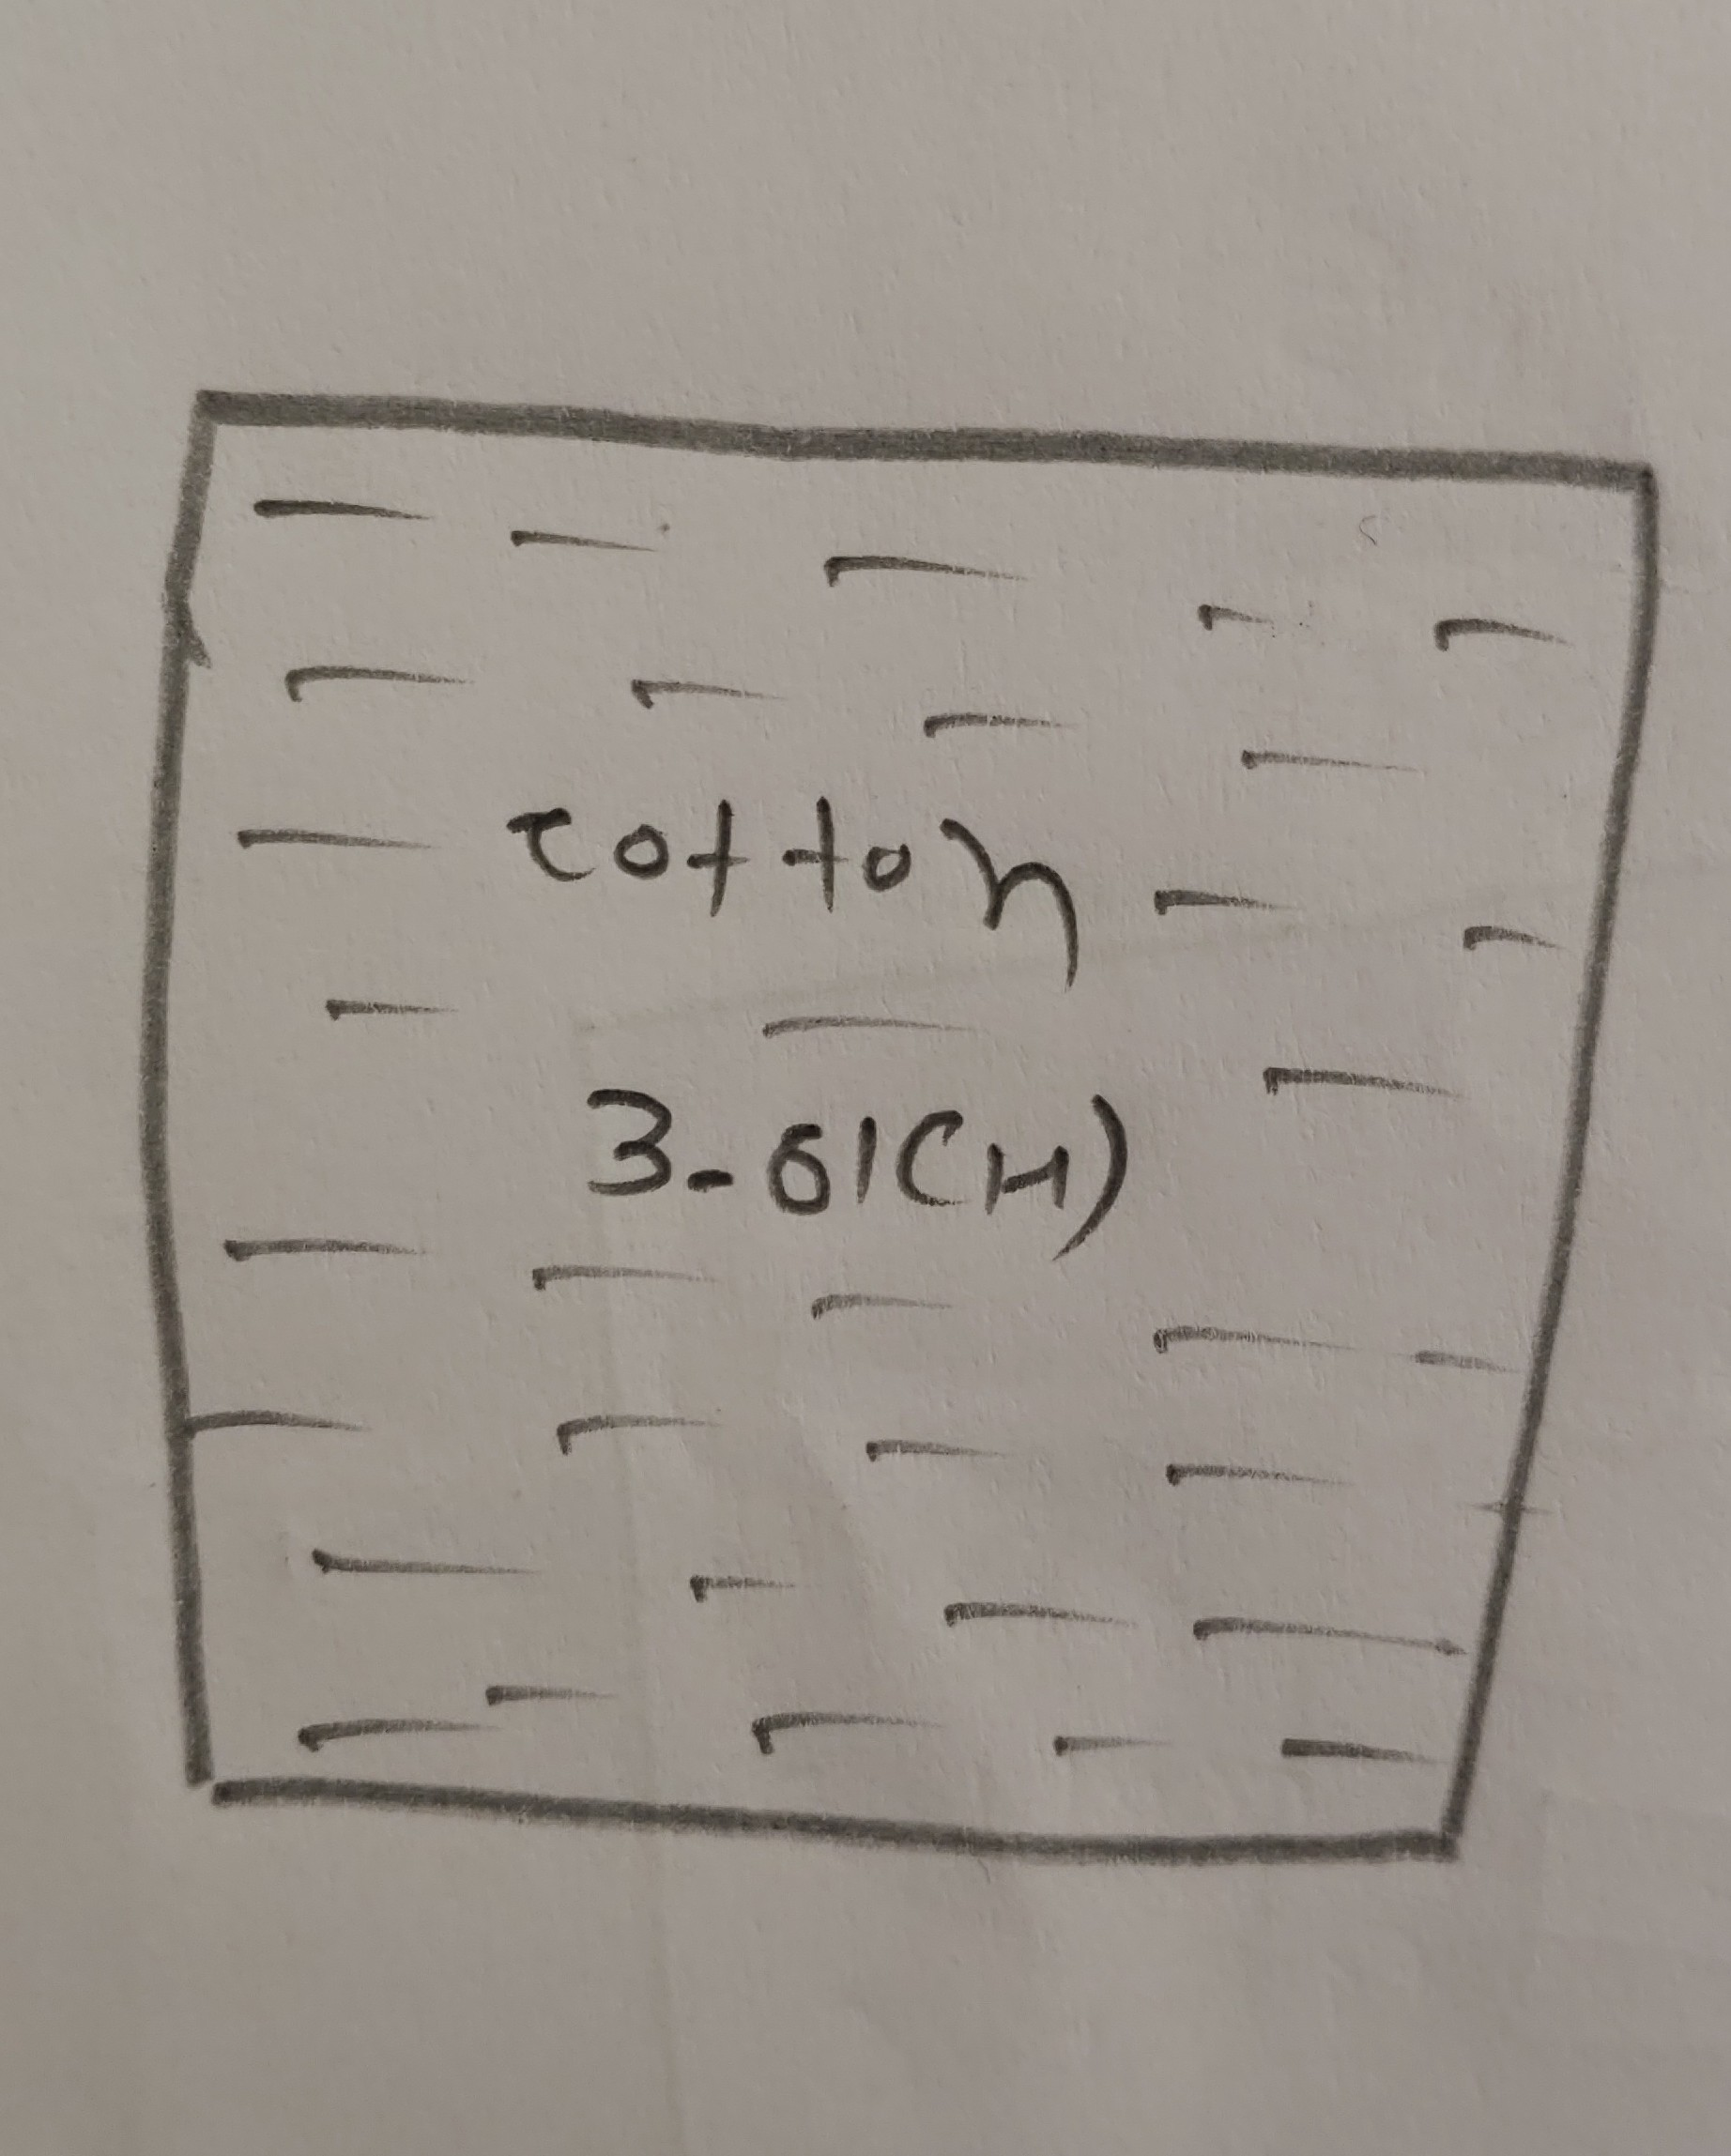 cotton
3-61(H)